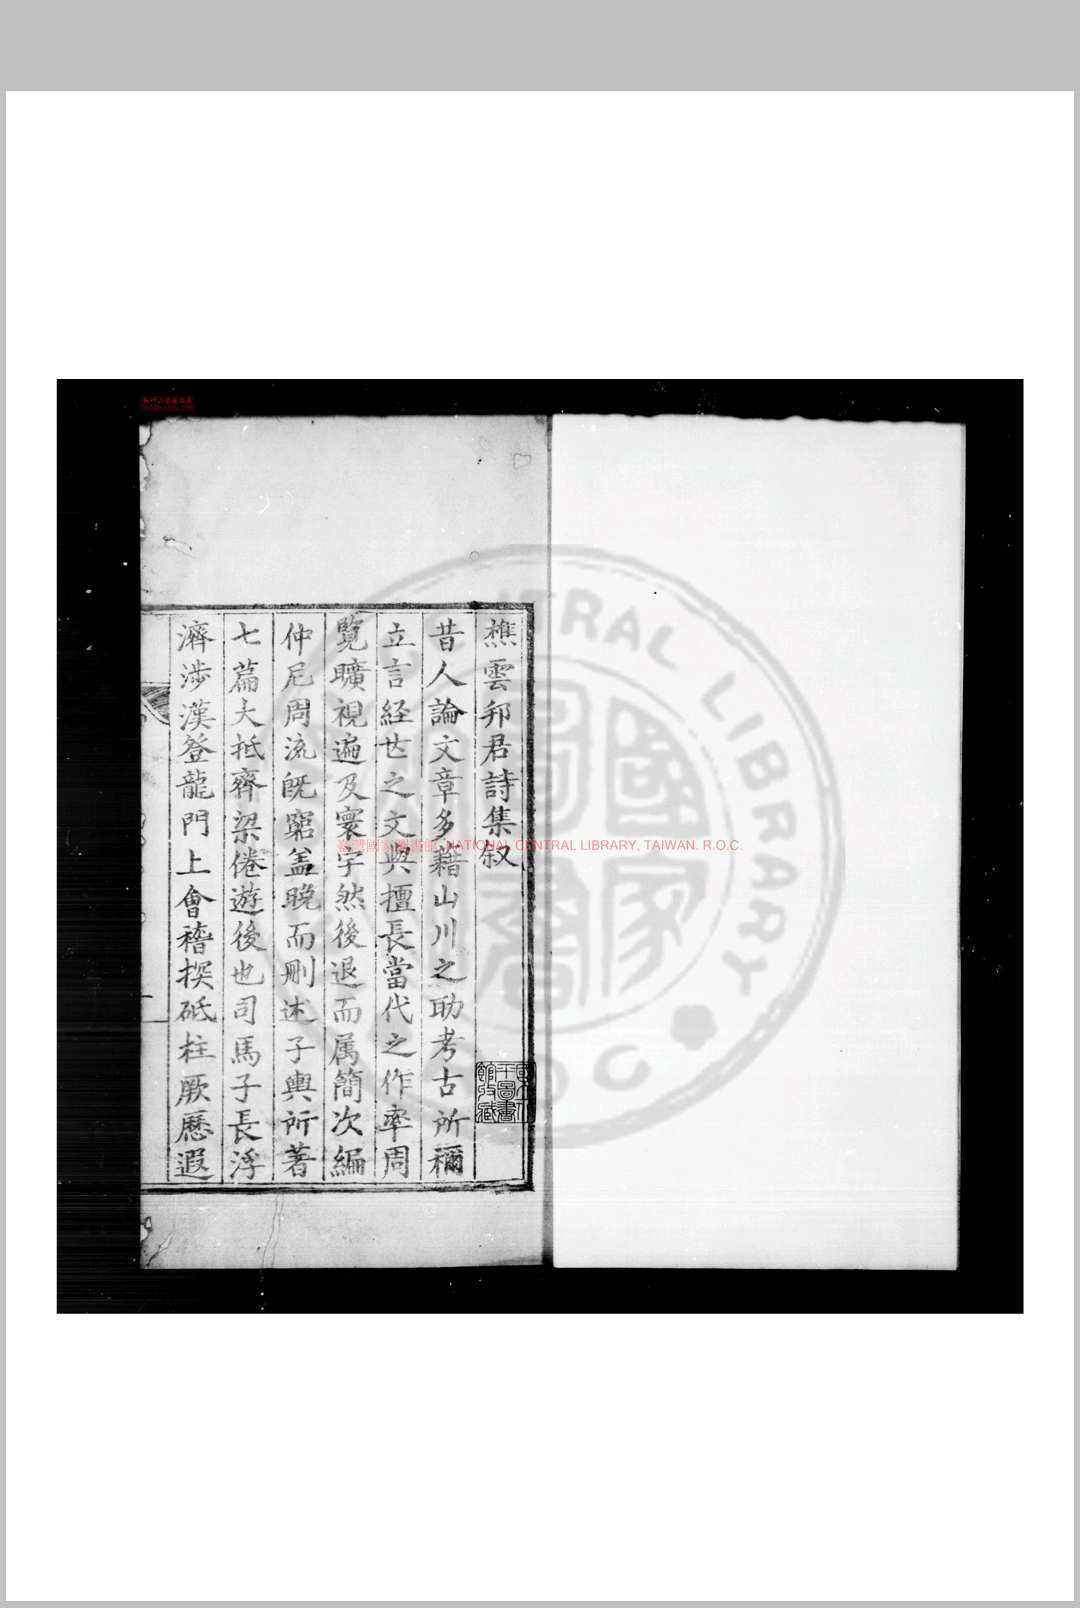 樵雲邦君詩集叙
昔人論文章多藉山川之助考古所稱
立言経世之文與擅長當代之作率周
覽曠視遍及寰宇然後退而属簡次編
仲尼周流旣窮盖晚而刪述子輿所著
七篇大抵齊梁倦遊後也司馬子長浮
濟涉漢登龍門上會稽探砥柱厥歷遐
國立中
央圖書
館收藏
臺灣國家圖書館, NATIONAL CENTRAL LIBRARY, TAIWAN. R.O.C.